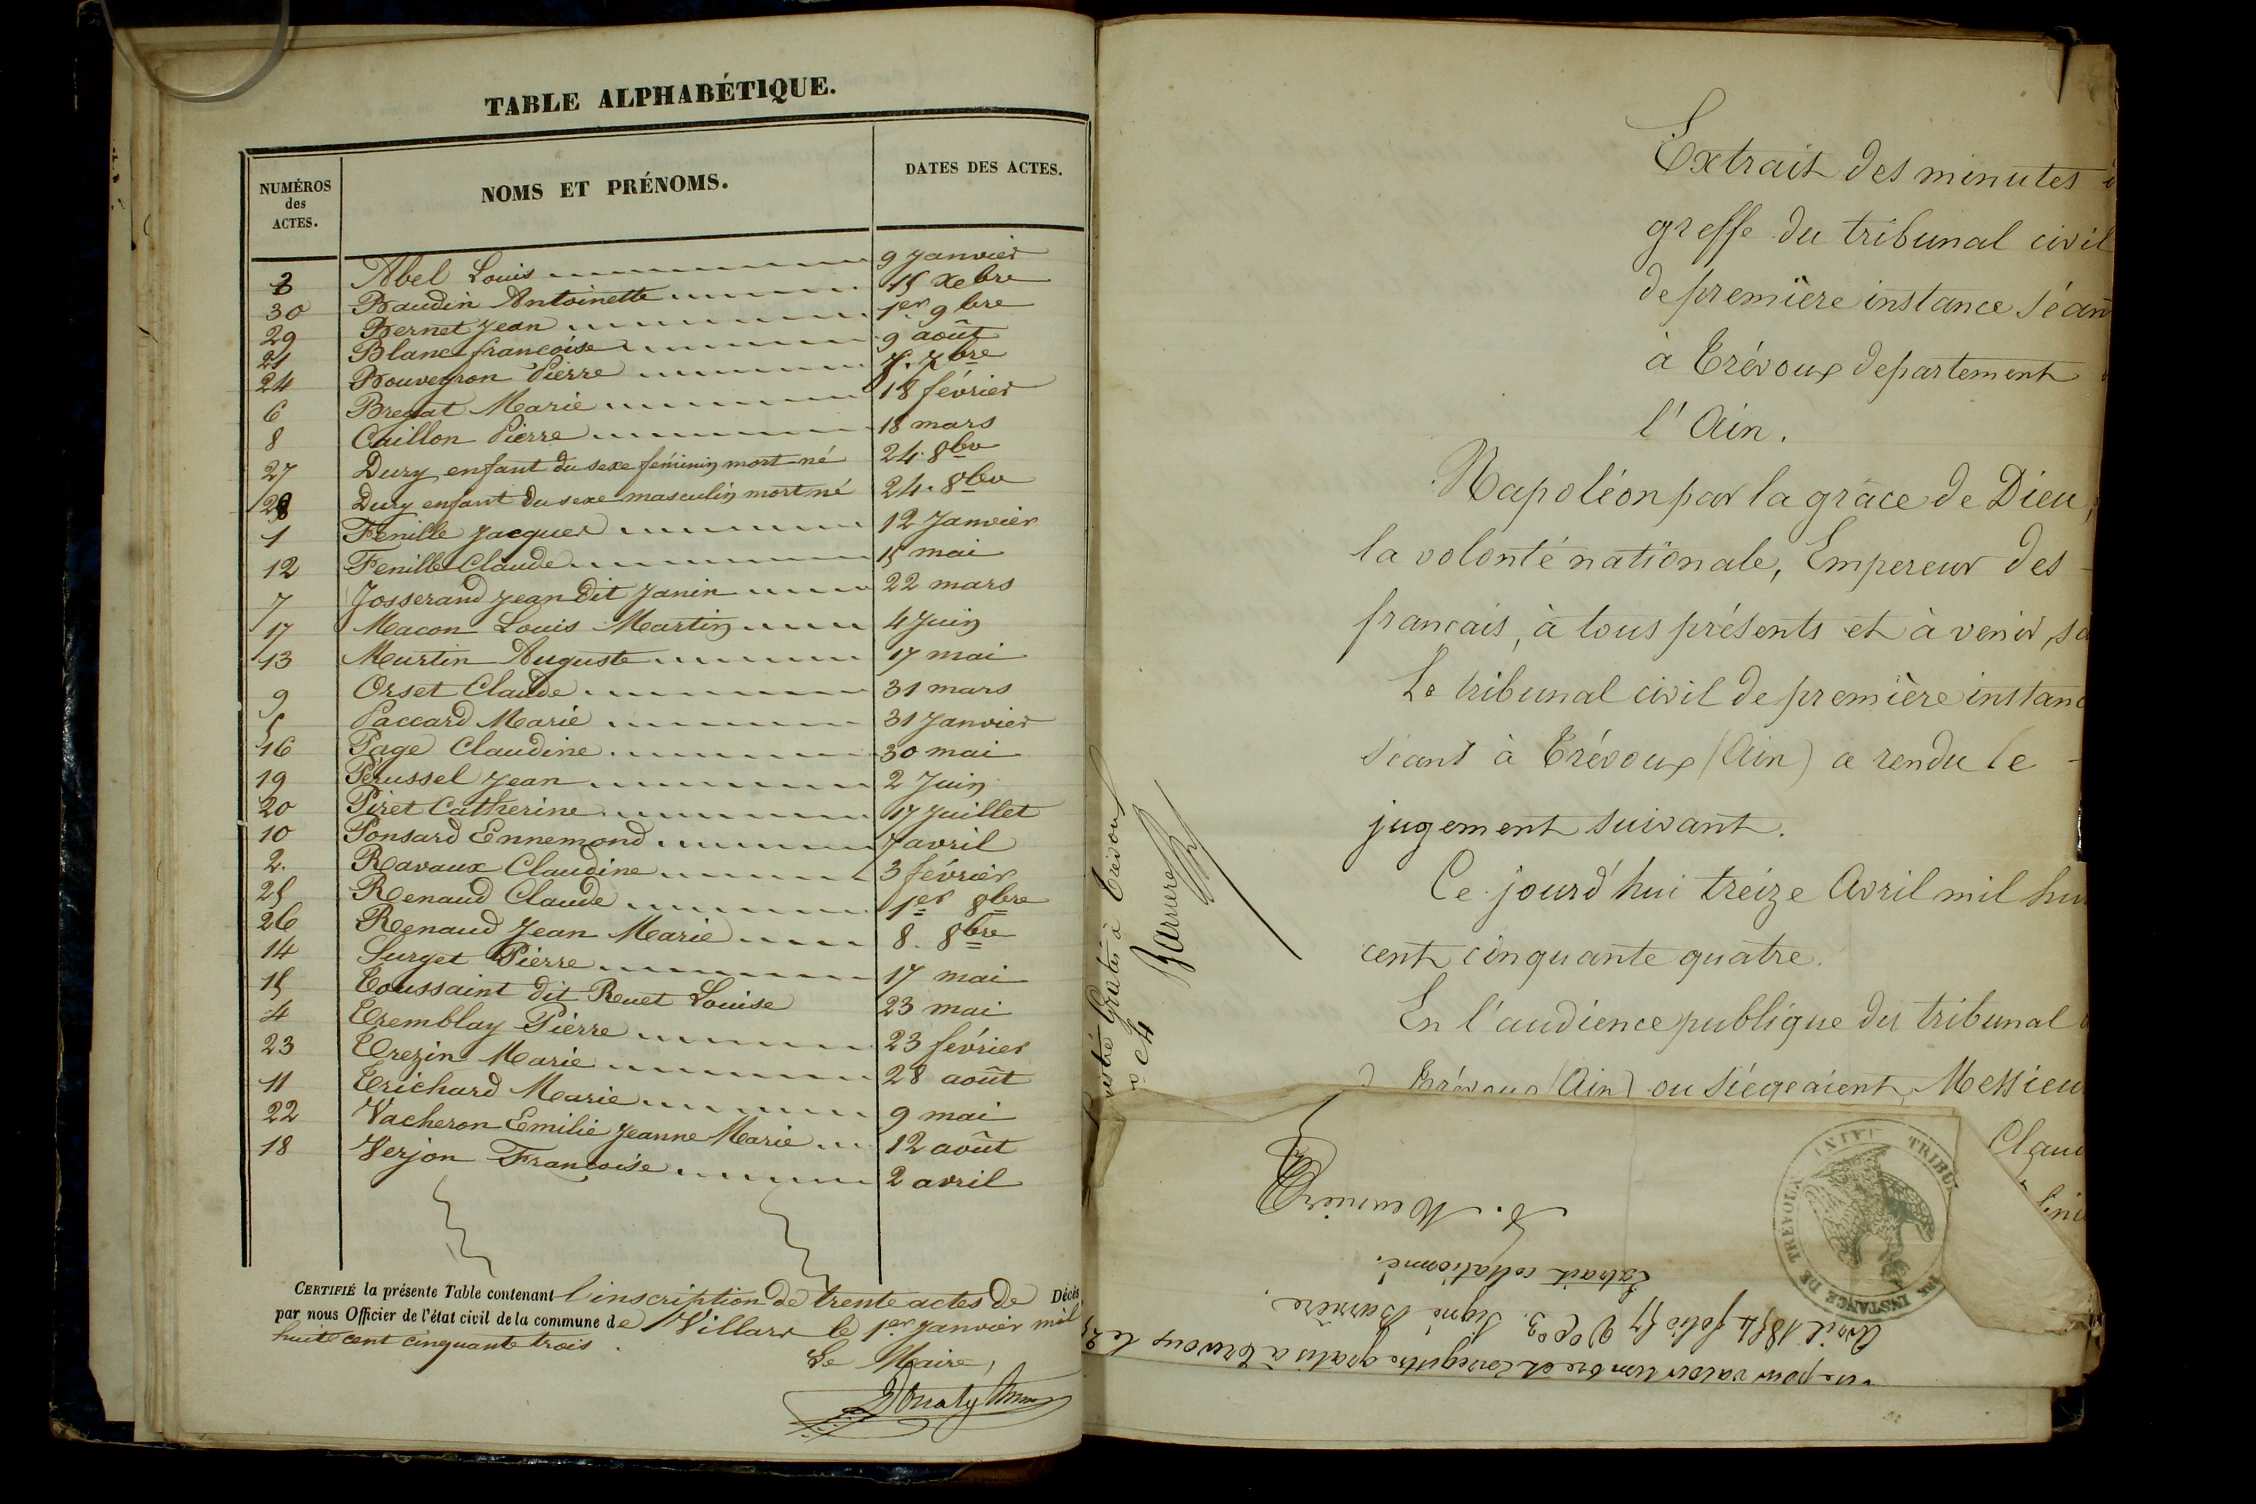 TABLE ALPHABÉTIQUE.
NUMÉROS des ACTES. NOMS ET PRÉNOMS. DATES DES ACTES.
3 Abel Louis 9 Janvier
30 Baudin Antoinette 15 Xebre
29 Bernet Jean 1er 9bre
21 Blanc francoise 9 août
24 Bouveyron Pierre 7. 7bre
6 Bregat Marie 18 février
8 Caillon Pierre 18 mars
27 Dury enfant du sexe féminin mort-né 24. 8bre
28 Dury enfant du sexe masculin mort né 24. 8bre
1 Fenille Jacques 12 Janvier
12 Fenille Claude 15 mai
7 Josserand Jean dit Janin 22 mars
17 Macon Louis Martin 4 Juin
13 Murtin Auguste 17 mai
9 Orset Claude 31 mars
5 Paccard Marie 31 Janvier
16 Page Claudine 30 mai
19 Perussel Jean 2 Juin
20 Piret Catherine 17 Juillet
10 Ponsard Ennemond 7 avril
2. Ravaux Claudine 3 février
25 Renaud Claude 1er 8bre
26 Renaud Jean Marie 8. 8bre
14 Surget Pierre 17 mai
15 Toussaint dit Ruet Louise 23 mai
4 Tremblay Pierre 23 février
23 Trezin Marie 28 août
11 Trichard Marie 9 mai
22 Vacheron Emilie Jeanne Marie 12 août
18 Verjon Francoise 2 avril
CERTIFIÉ la présente Table contenant l'inscription de trente actes de Décès
par nous Officier de l'état civil de la commune de Villars le 1er Janvier mil
huit cent cinquante trois.
Le Maire,
Extrait des minutes
greffe du tribunal civil
de première instance séan
à Trévoux departement
l'Ain.
Napoléon par la grâce de Dieu,
la volonté nationale, Empereur des
francais, à tous présents et à venir, sa
Le tribunal civil de première instanc
séant à Trévoux (Ain) a rendu le
jugement suivant.
Ce jourd'hui treize Avril mil hui
cent cinquante quatre.
En l'audience publique du tribunal
Trévoux (Ain) ou siégeaient Messieu
Clau
Gratis à Trévoux
Barriere
A. Meunier
Extrait collationné.
Avril 1854 folio 57 V° C. 3. Signé Barrière.
pour valoir timbre et enregistré gratis à Trevoux le 25
TRIBU
DE INSTANCE DE TREVOUX